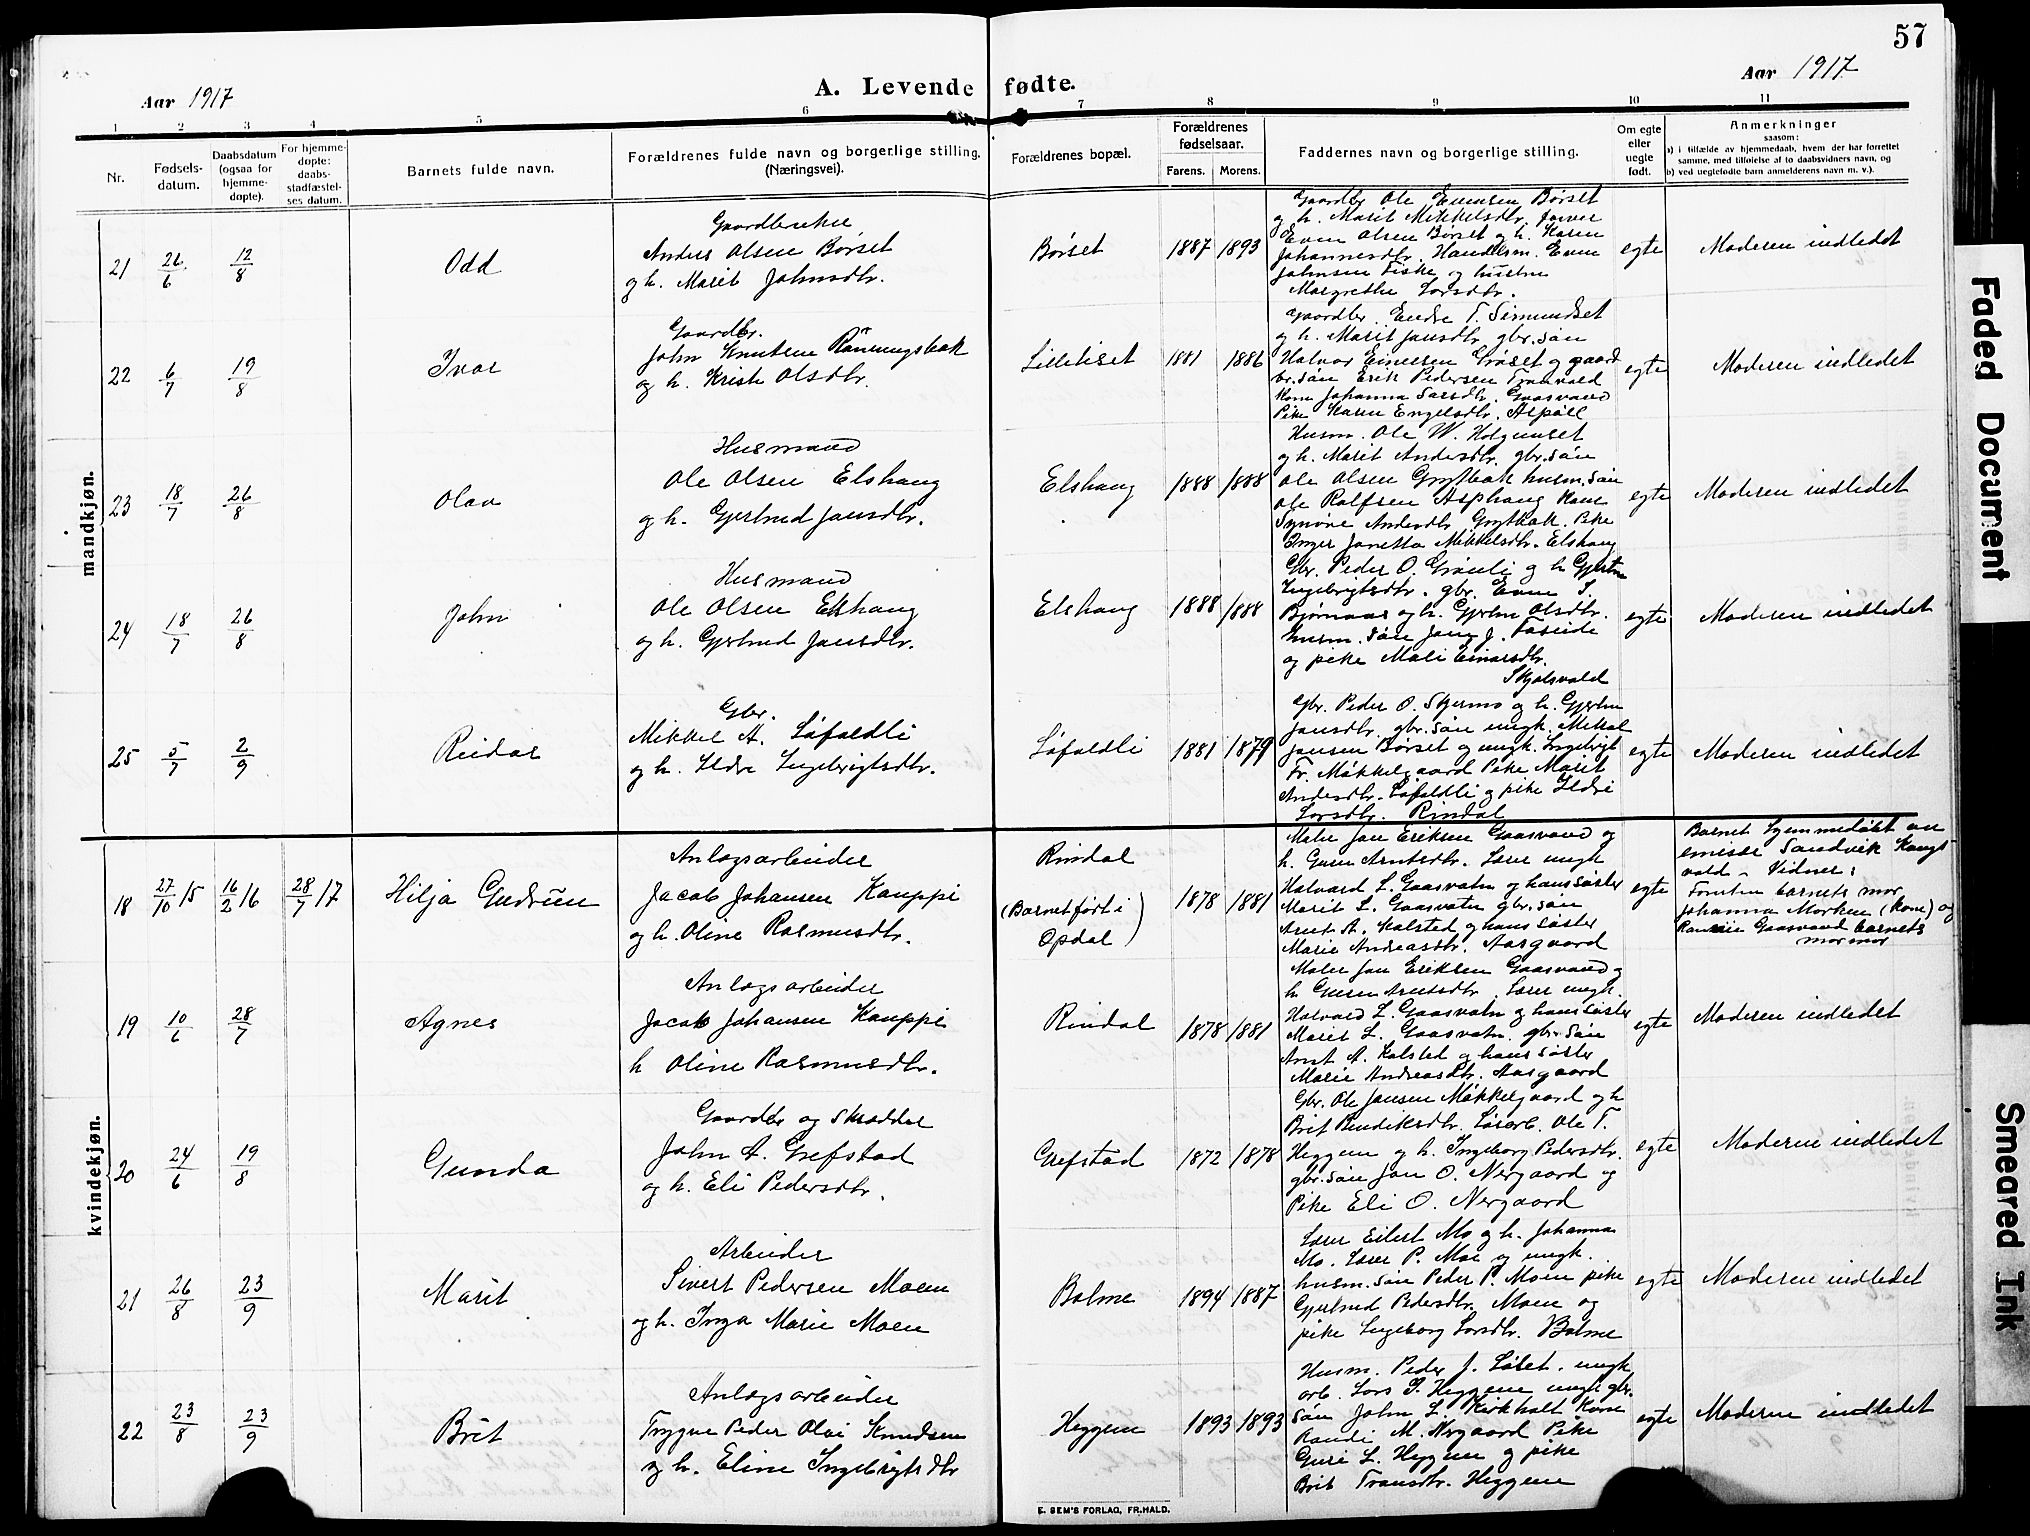 57
Aar 1917
A. Levende fødte.
Aar 1917
1 2 3 4 5 6 7 8 9 10 11
Nr.
Fødsels-
datum.
Daabsdatum
(ogsaa for
hjemme-
døpte).
For hjemme-
døpte:
daabs-
stadfæstel-
ses datum.
Barnets fulde navn.
Forældrenes fulde navn og borgerlige stilling.
(Næringsvei).
Forældrenes bopæl.
Forældrenes
fødselsaar.
Farens. Morens.
Faddernes navn og borgerlige stilling.
Om egte
eller
uegte
født.
Anmerkninger
saasom:
a) i tilfælde av hjemmedaab, hvem der har forrettet
samme, med tilføielse af to daabsvidners navn, og
b) ved uegtefødte barn anmelderens navn m. v.).
mandkjøn.
21 26/6 12/8 Odd
Gaardbruker
Anders Olsen Børset
og h. Marit Johnsdtr.
Børset 1887 1893
Gaardbr Ole Evensen Børset
og h. Marit Mikkelsdtr. farver
Even Olsen Børset og h. Karen
Johannesdtr. Handelsm. Even
Johnsen Fiske og hustru
Margrethe Larsdtr.
egte Moderen indledet
22 6/7 19/8 Ivar
Gaardbr.
John Knutsen Rönningsbak
og h. Kristi Olsdtr.
Lilletiset 1881 1886
Gaardbr. Endre T. Simundset
og h. Marit Jansdtr gbr. sön
Halvor Einersen Grøset og gaard
br. sön Erik Pedersen Tranvald
Kone Johanna Larsdtr. Gaasvand
Pike Karen Engelsdtr. Aspøll
egte Moderen indledet
23 18/7 26/8 Olav
Husmand
Ole Olsen Elshaug
og h. Gjertrud Jansdtr.
Elshaug 1888 1888
Husm. Ole W. Holgunset
og h. Marit Andersdtr. gbr. sön
Ole Olsen Grytbak husm. sön
Ole Rolfsen Asphaug Kone
Synøve Andersdtr Grytbak. Pike
Inger Janetta Mikkelsdtr. Elshaug
egte Moderen indledet
24 18/7 26/8 John
Husmand
Ole Olsen Elshaug
og h. Gjertrud Jansdtr.
Elshaug 1888 1888
Gbr. Peder O. Grønli og h Gjertru
Ingebrigtsdtr. gbr. Even S.
Bjørnaas og h. Gjertru Olsdtr.
husm. sön Jan J. Faseide
og pike Mali Einarsdtr.
Skjølsvold
egte Moderen indledet
25 5/7 2/9 Reidar
Gbr.
Mikkel A. Løfaldli
og h. Ildre Ingebrigtsdtr.
Løfaldli 1881 1879
Gbr. Peder O. Skjermo og h. Gjertru
Jansdtr. gbr. sön ungk. Mikkal
Jansen Børset og ungk. Ingebrigt
Fr. Møkkelgaard Pike Marit
Andersdtr. Løfaldli og pike Ildri
Larsdtr. Rindal
egte Moderen indledet
kvindekjøn.
18 27/10 15 16/2 16 28/7 17 Hilja Gudrün
Anlægsarbeider
Jacob Johansen Kauppi
og h. Oline Rasmusdtr.
Rindal
(Barnet født i
Opdal)
1878 1881
Maler Jan Eriksen Gaasvand og
h. Guren Arntsdtr. Lærer ungk
Halvard L. Gaasvatn og hans søster
Marit L. Gaasvatn gbr. søn
Arnt A. Kalsted og hans søster
Marie Andreasdtr. Aasgaard
egte
Barnet hjemmedøbt av
emissær Sandvik Kongs
vold. Vidner:
barnets mor
Johanna Morken (Kone) og
Gaasvand barnets
mormor
19 10/6 28/7 Agnes
Anlægsarbeider
Jacob Johansen Kauppi
h Oline Rasmusdtr.
Rindal 1878 1881
Maler Jan Eriksen Gaasvand og
h Guren Arntsdtr. Lærer ungk.
Halvard L. Gaasvatn og hans søster
Marit L. Gaasvatn. gbr. sön
Arnt A. Kalsted og hans søster
Marie Andreasdtr. Aasgaard
egte Moderen indledet
20 24/6 19/8 Gunda
Gaardbr og skrædder
John A. Grefstad
og h. Eli Pedersdtr.
Grefstad 1872 1878
Gbr. Ole Jansen Møkkelgaard og h
Brit Bendiksdtr. Løsarb. Ole T.
Heggem og h. Ingeborg Pedersdtr.
gbr. søn Jan O. Nergaard og
Pike Eli O. Nergaard
egte Moderen indledet
21 26/8 23/9 Marit
Arbeider
Sivert Pedersen Moen
og h. Inga Marie Moen
Bolme 1894 1887
Lærer Eilert Mo og h. Johanna
Mo. Lærer P. Moe og ungk.
husm. søn Peder P. Moen pike
Gjertrud Pedersdtr. Moen og
pike Ingeborg Larsdtr. Bolme
egte Moderen indledet
22 23/8 23/9 Brit
Anlægsarbeider
Trygve Peder Olai Knudsen
og h. Eline Ingebrigtsdtr
Heggem 1893 1893
Husm. Peder J. Løset. ungk
arb. Lars P. Heggem ungk gbr.
søn John L. Kirkholt Kone
Randi M. Nergaard Pike
Guri L. Heggem og pike
Brit Transdtr. Heggem
egte Moderen indledet
E. SEM'S FORLAG, FR.HALD.
Faded Document
Smeared Ink